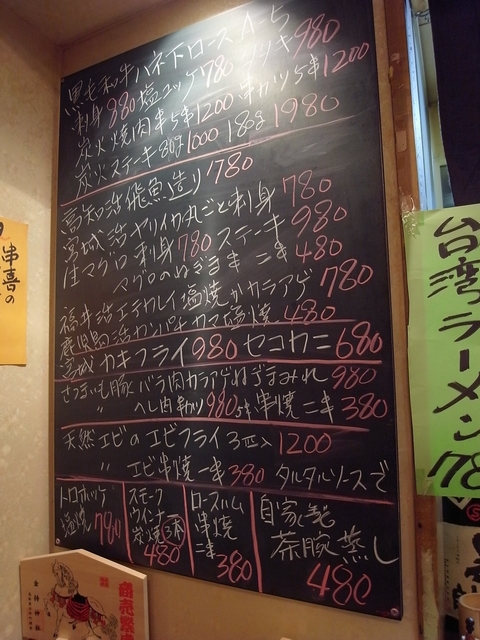 黒毛和牛ハネ下ロース A-5
刺身980 塩ユッケ780 タタキ980
炭火焼肉串5本1200 串カツ5本1200
炭火ステーキ80g1000 180g1980
高知 活 飛魚造り780
宮城 活ヤリイカ丸ごと刺身780
生マグロ刺身780ステーキ980
マグロのねぎま串 二本480
福井 活エテカレイ塩焼かカラアゲ780
鹿児島 活カンパチカマ塩焼480
宮城 カキフライ980 セコカニ680
さつまいも豚バラ肉カラアゲねぎまみれ980
〃 ヘレ肉串カツ980 5本 串焼二本380
天然エビのエビフライ3匹入1200
〃 エビ串焼一本380 タルタルソースで
トロホッケ
塩焼780
スモーク
ウインナー
炭焼5本
480
ロースハム
串焼
二本
380
自家製
茶豚蒸し
480
串喜の
台湾ラーメン
78
商売繁
金持神社